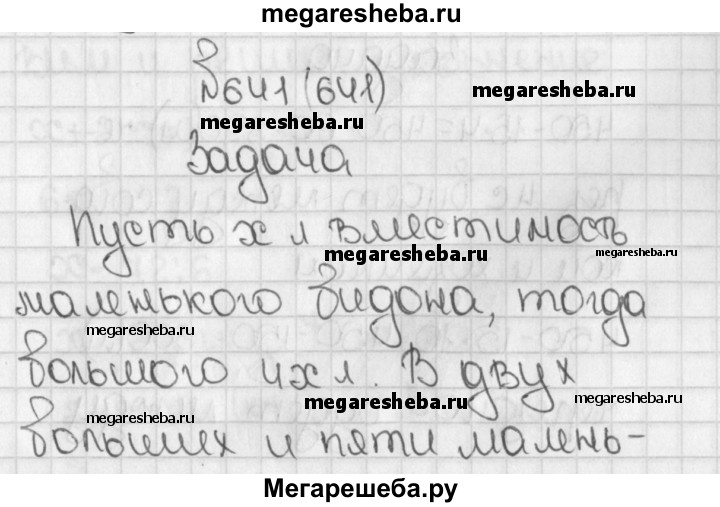 megaresheba.ru
№641 (641)
megaresheba.ru
megaresheba.ru
Задача
Пусть х л вместимость
megaresheba.ru
megaresheba.ru
маленького бидона, тогда
megaresheba.ru
megaresheba.ru
большого 4х л. В двух
megaresheba.ru
megaresheba.ru
больших и пяти малень-
Мегарешеба.ру